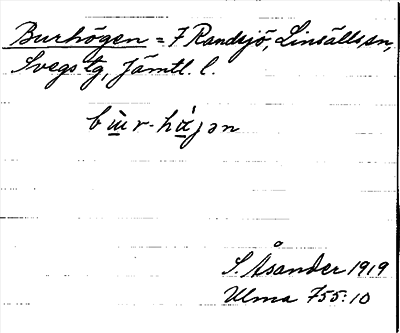 Burhögen = 7 Randsjö, Linsälls sn,
Svegs tg, Jämtl. l.
S. Åsander 1919
Ulma 755:10